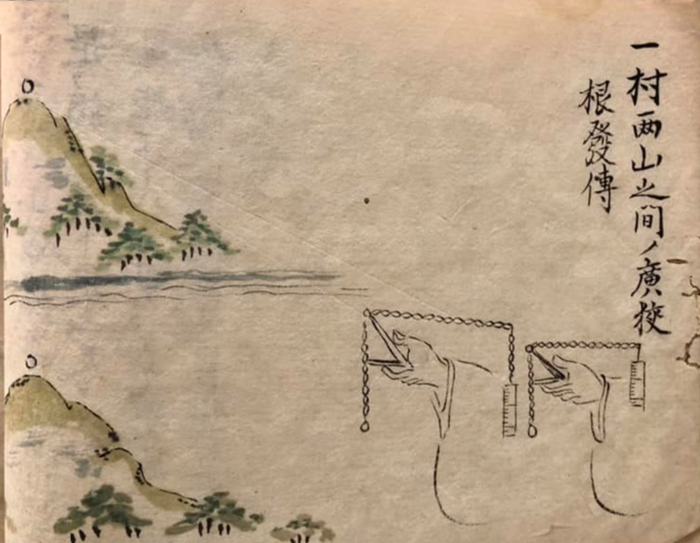 一村両山之間ノ廣挍
根發傳